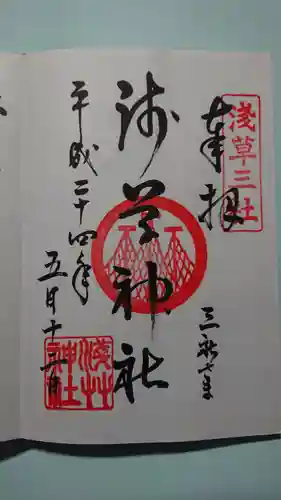 浅草三社
奉拝
三社さま
浅草神社
平成二十四年
五月十三日
浅草神社